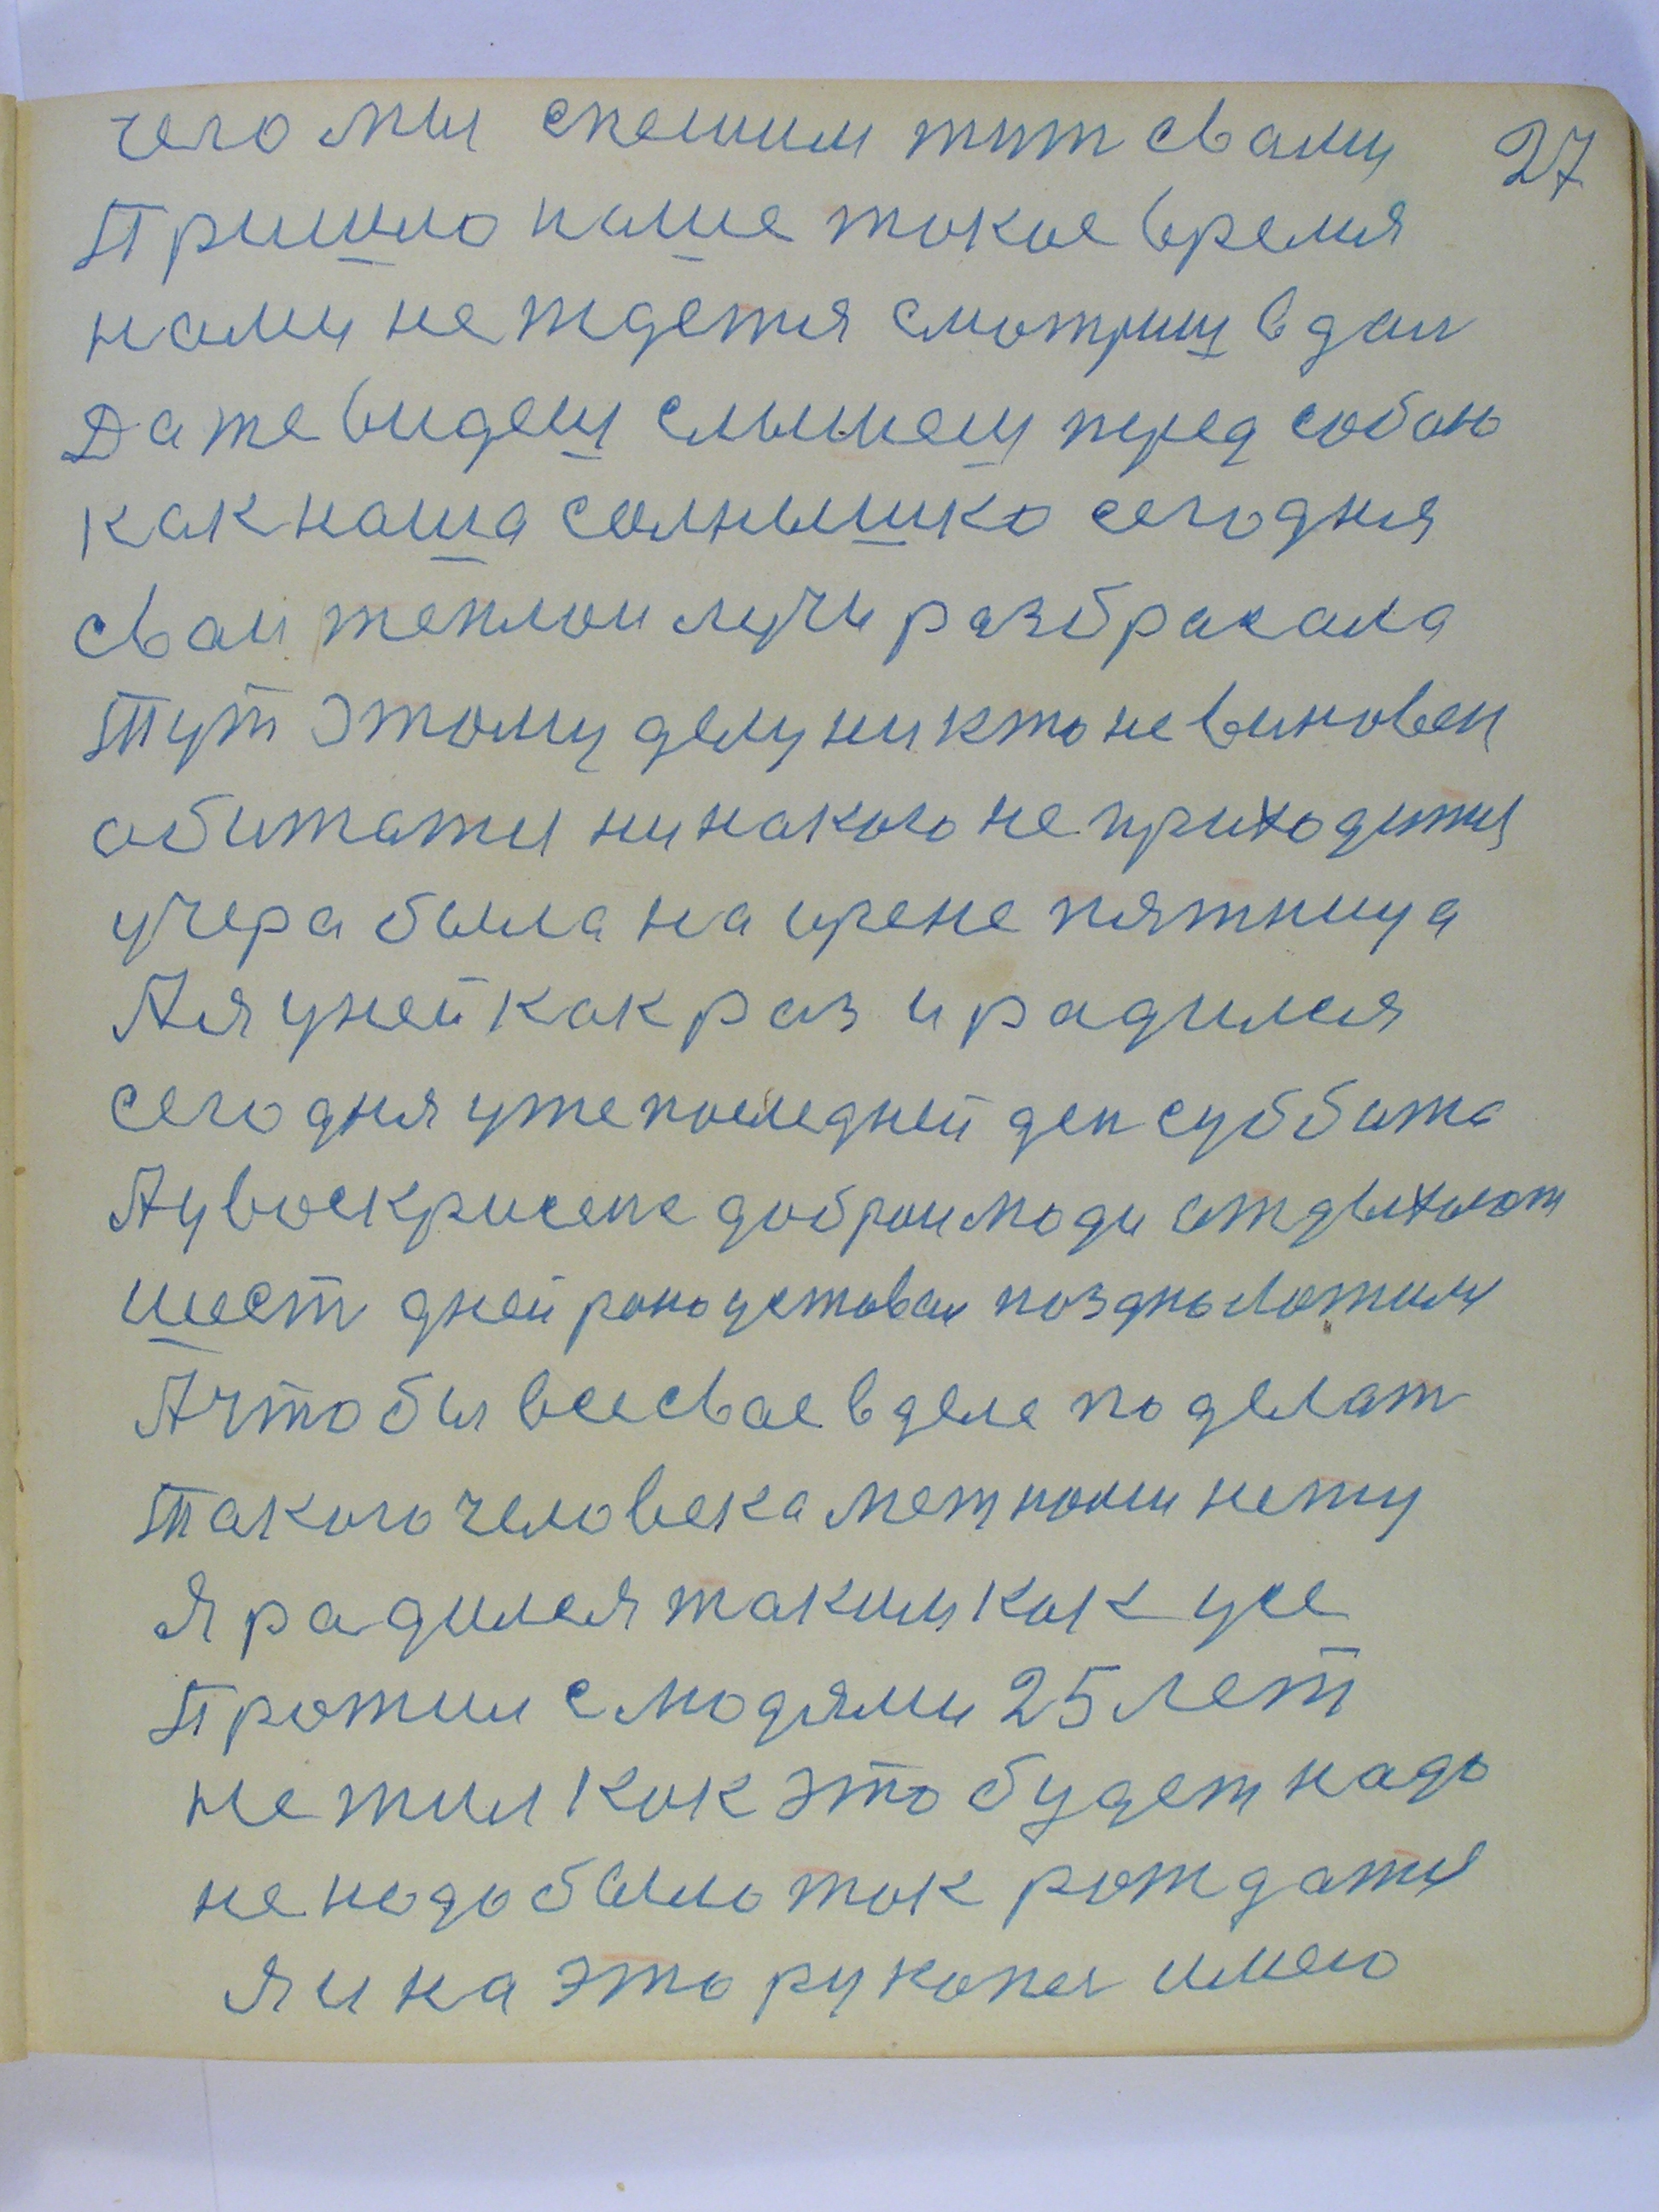 чего мы спешим тут свами 27
Пришло наше такое время
нами не ждется смотриш вдал
Даже видеш слышеш перед собою
как наша солнышко сегодня
сваи теплои лучи разбрасала
Тут этому делу никто невиновен
обижатся нинакого не приходится
учера была на ирене пятница
Ая уней как раз и радился
сегодня уже последней ден суббота
Аувоскрисене добрыи люди отдыхают
шест дней рано уставали поздно ложился
Ачтобы все свае вделе поделат
Такого человека меж нами нету
я радился таким как усе
Прожил слюдями 25 лет
не жил как это будет надо
не надо было так рождатся
я и на это рукопся имею